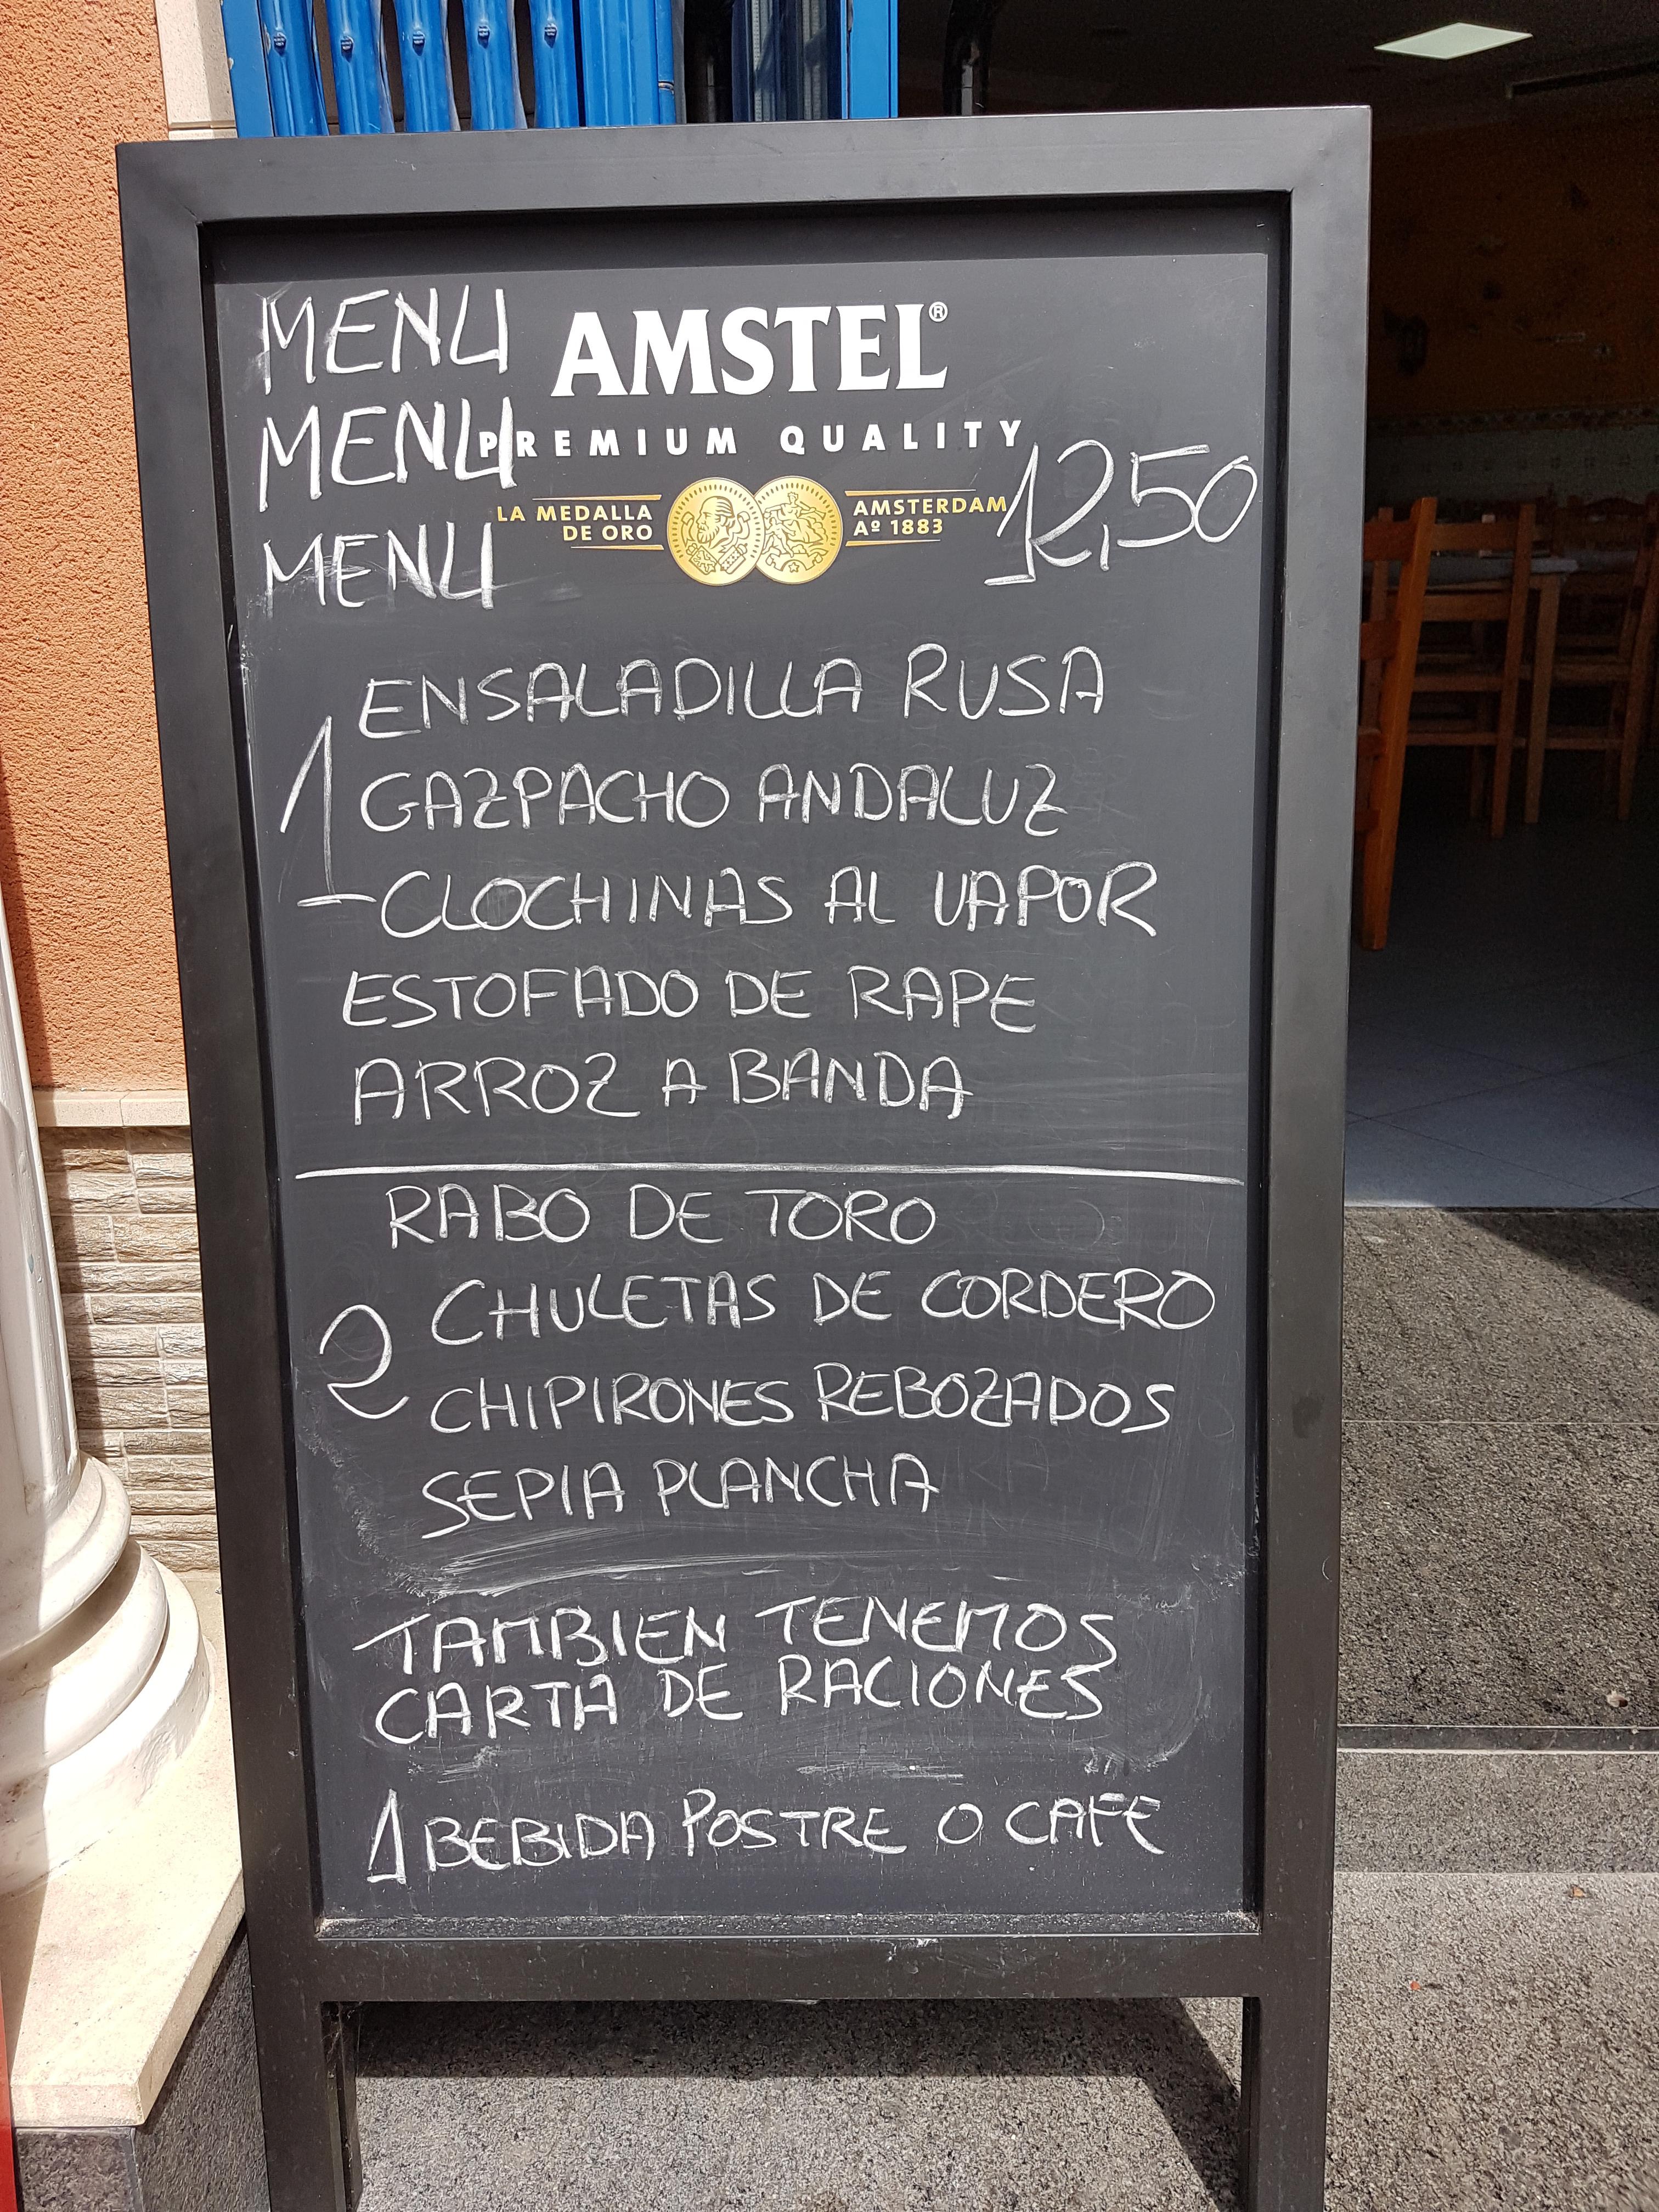 MENU
AMSTEL®
MENU
PREMIUM QUALITY
12,50
LA MEDALLA
DE ORO
AMSTERDAM
Aº 1883
MENU
1
ENSALADILLA RUSA
GAZPACHO ANDALUZ
CLOCHINAS AL VAPOR
ESTOFADO DE RAPE
ARROZ A BANDA
2
RABO DE TORO
CHULETAS DE CORDERO
CHIPIRONES REBOZADOS
SEPIA PLANCHA
TAMBIEN TENEMOS
CARTA DE RACIONES
1 BEBIDA POSTRE O CAFE